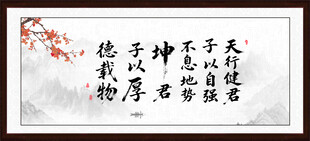 天行健君
子以自强
不息地势
坤君
子以厚
德载物